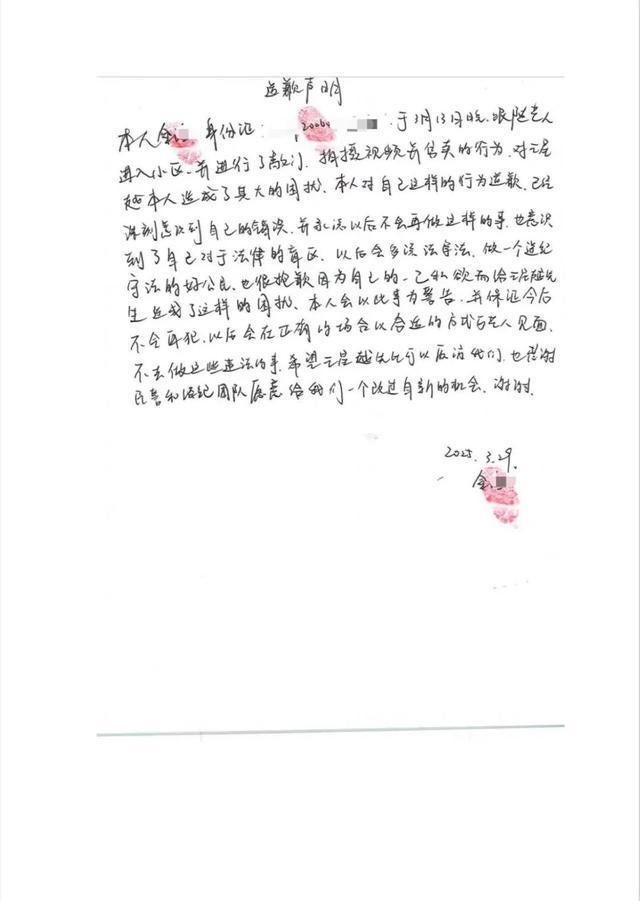 道歉声明
本人金 身份证: 2006 于3月13日晚跟随艺人
进入小区并进行了敲门、拍摄视频并售卖的行为,对丞星
越本人造成了莫大的困扰,本人对自己这样的行为道歉,已经
深刻意识到自己的错误,并永远以后不会再做这样的事,也意识
到了自己对于法律的盲区,以后会多读法守法,做一个遵纪
守法的好公民,也很抱歉因为自己的一己私欲而给王星越先
生造成了这样的困扰,本人会以此事为警告,并保证今后
不会再犯,以后会在正有的场合以合适的方式与艺人见面,
不去做这些违法的事,希望王星越先生可以原谅我们,也感谢
民警和经纪团队愿意给我们一个改过自新的机会,谢谢.
2025.3.29.
金